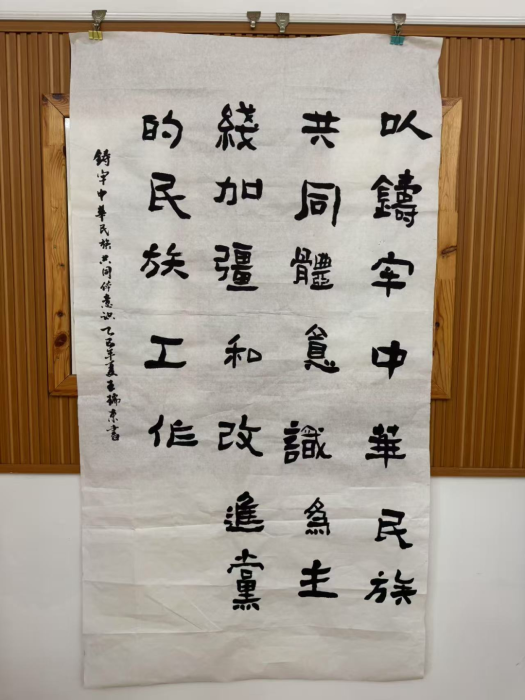 以鑄牢中華民族
共同體意識為主
綫加彊和改進黨
的民族工作
鑄牢中華民族共同体意识乙巳年夏王瑞东書